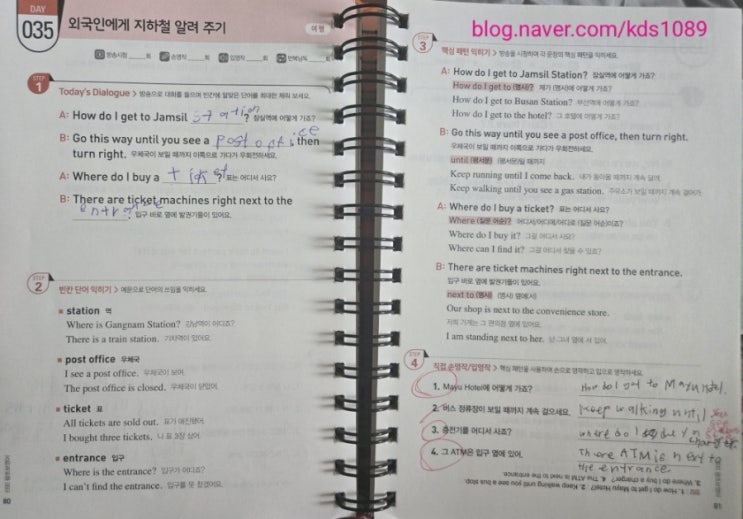 DAY
035
외국인에게 지하철 알려 주기
여행
방송시청 ___회
손영작 ___회
입영작 ___회
반복낭독 ___회
STEP
1
Today's Dialogue > 방송으로 대화를 들으며 빈칸에 알맞은 단어를 최대한 채워 보세요.
A: How do I get to Jamsil 잠실역에 어떻게 가죠?
B: Go this way until you see a post office, then
turn right. 우체국이 보일 때까지 이쪽으로 가다가 우회전하세요.
A: Where do I buy a ticket? 표는 어디서 사요?
B: There are ticket machines right next to the
입구 바로 옆에 발권기들이 있어요.
STEP
2
빈칸 단어 익히기 > 예문으로 단어의 쓰임을 익히세요.
station 역
Where is Gangnam Station? 강남역이 어디죠?
There is a train station. 기차역이 있어요.
post office 우체국
I see a post office. 우체국이 보여.
The post office is closed. 우체국이 닫았어.
ticket 표
All tickets are sold out. 표가 매진됐어.
I bought three tickets. 나 표 3장 샀어.
entrance 입구
Where is the entrance? 입구가 어디죠?
I can't find the entrance. 입구를 못 찾겠어요.
80
blog.naver.com/kds1089
STEP
3
핵심 패턴 익히기 > 방송을 시청하며 각 문장의 핵심 패턴을 익히세요.
A: How do I get to Jamsil Station? 잠실역에 어떻게 가죠?
How do I get to (명사)? 제가 (명사)에 어떻게 가죠?
How do I get to Busan Station? 부산역에 어떻게 가죠?
How do I get to the hotel? 그 호텔에 어떻게 가죠?
B: Go this way until you see a post office, then turn right.
우체국이 보일 때까지 이쪽으로 가다가 우회전하세요.
until (평서문) (평서문)일 때까지
Keep running until I come back. 내가 돌아올 때까지 계속 달려.
Keep walking until you see a gas station. 주유소가 보일 때까지 계속 걸어가.
A: Where do I buy a ticket? 표는 어디서 사요?
Where (질문 어순)? 어디서/어디에/어디로 (질문 어순)이죠?
Where do I buy it? 그걸 어디서 사요?
Where can I find it? 그걸 어디서 찾을 수 있죠?
B: There are ticket machines right next to the entrance.
입구 바로 옆에 발권기들이 있어요.
next to (명사) (명사) 옆에(서)
Our shop is next to the convenience store.
저희 가게는 그 편의점 옆에 있어요.
I am standing next to her. 난 그녀 옆에 서 있어.
STEP
4
직접 손영작/입영작 > 핵심 패턴을 사용하여 손으로 영작하고 입으로 영작하세요.
1. Mayu Hotel에 어떻게 가죠? How do I get to Mayu Hotel.
2. 버스 정류장이 보일 때까지 계속 걸으세요. Keep walking until
3. 충전기를 어디서 사죠? where do I buy
4. 그 ATM은 입구 옆에 있어. There ATM is next to
the entrance
1. How do I get to Mayu Hotel? 2. Keep walking until you see a bus stop.
3. Where do I buy a charger? 4. The ATM is next to the entrance.
81